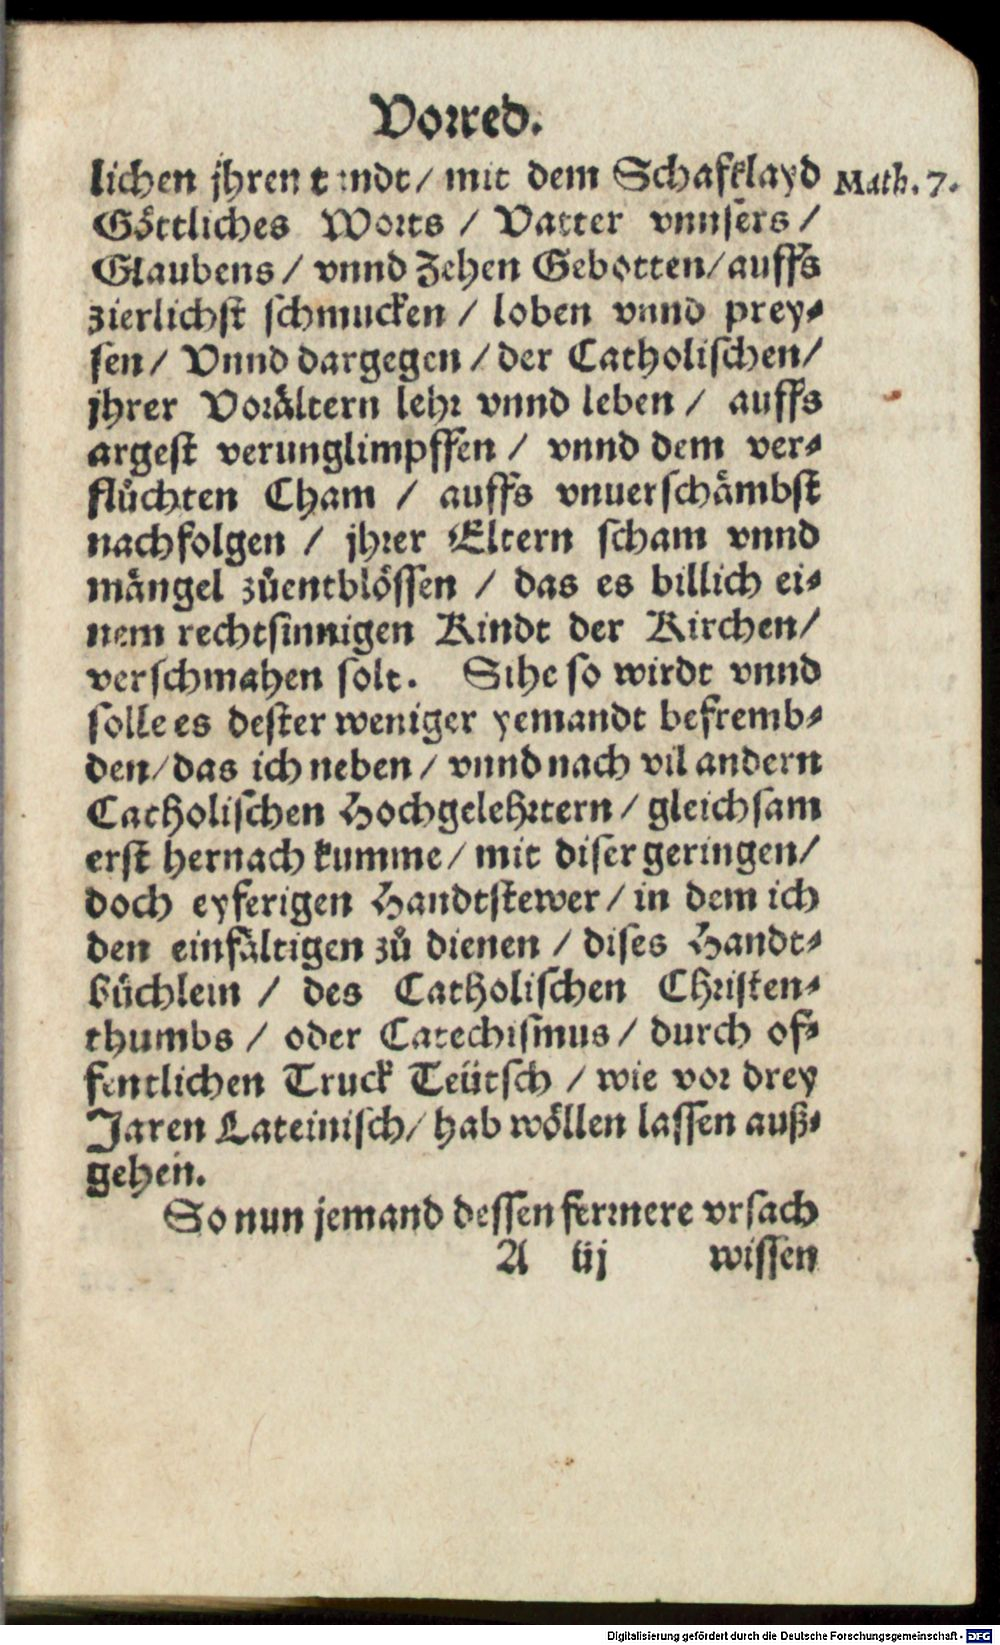 Vorred.
lichen jhren t ndt / mit dem Schafklayd Math. 7.
Göttliches Worts / Vatter vnnsers /
Glaubens / vnnd Zehen Gebotten / auffs
zierlichst schmucken / loben vnnd prey⸗
sen / Vnnd dargegen / der Catholischen /
jhrer Vorältern lehr vnnd leben / auffs
argest verunglimpffen / vnnd dem ver⸗
flůchten Cham / auffs vnuerschämbst
nachfolgen / jhrer Eltern scham vnnd
mängel zůentblössen / das es billich ei⸗
nem rechtsinnigen Kindt der Kirchen /
verschmahen solt. Sihe so wirdt vnnd
solle es dester weniger yemandt befremb⸗
den / das ich neben / vnnd nach vil andern
Catholischen Hochgelehrtern / gleichsam
erst hernach kumme / mit diser geringen /
doch eyferigen Handtstewer / in dem ich
den einfältigen zů dienen / dises Handt⸗
büchlein / des Catholischen Christen⸗
thumbs / oder Catechismus / durch of⸗
fentlichen Truck Teütsch / wie vor drey
Jaren Lateinisch / hab wöllen lassen auß⸗
gehen.
So nun jemand dessen fermere vrsach
A iij wissen
Digitalisierung gefördert durch die Deutsche Forschungsgemeinschaft - DFG